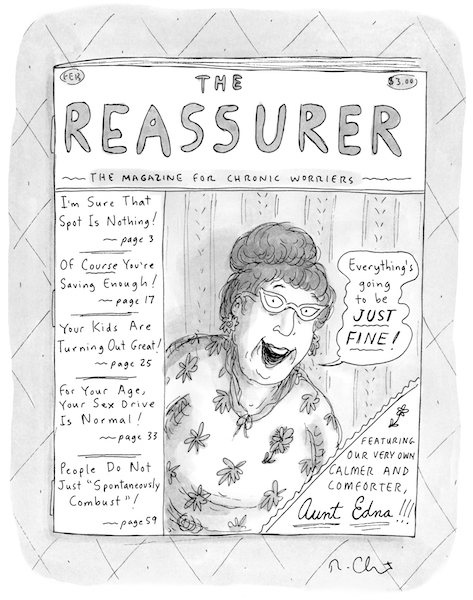 FEB
THE
$3.00
REASSURER
THE MAGAZINE FOR CHRONIC WORRIERS
I'm Sure That
Spot Is Nothing!
~ page 3
Of Course You're
Saving Enough!
~ page 17
Your Kids Are
Turning Out Great!
~ page 25
For Your Age,
Your Sex Drive
Is Normal!
~ page 33
People Do Not
Just "Spontaneously
Combust"!
~ page 59
Everything's
going
to be
JUST
FINE!
FEATURING
OUR VERY OWN
CALMER AND
COMFORTER,
Aunt Edna!!!
R. Chast